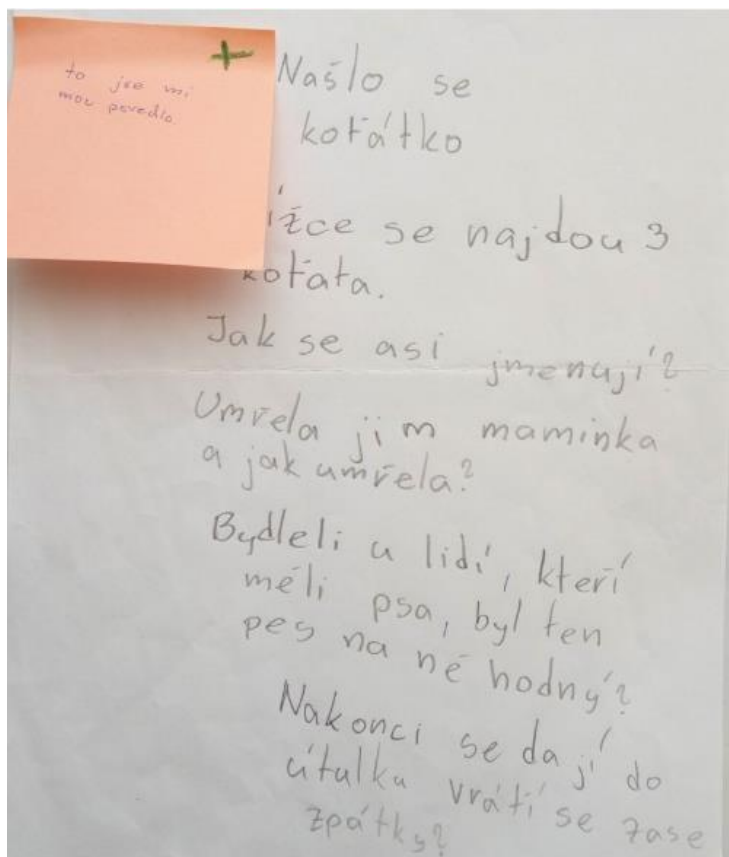 to jse mi
moc povedlo
+
Našlo se
koťátko
ížce se najdou 3
koťata.
Jak se asi jmenují?
Umřela jim maminka
a jak umřela?
Bydleli u lidí, kteří
měli psa, byl ten
pes na ně hodný?
Nakonci se dají do
útulku vrátí se zase
zpátky?